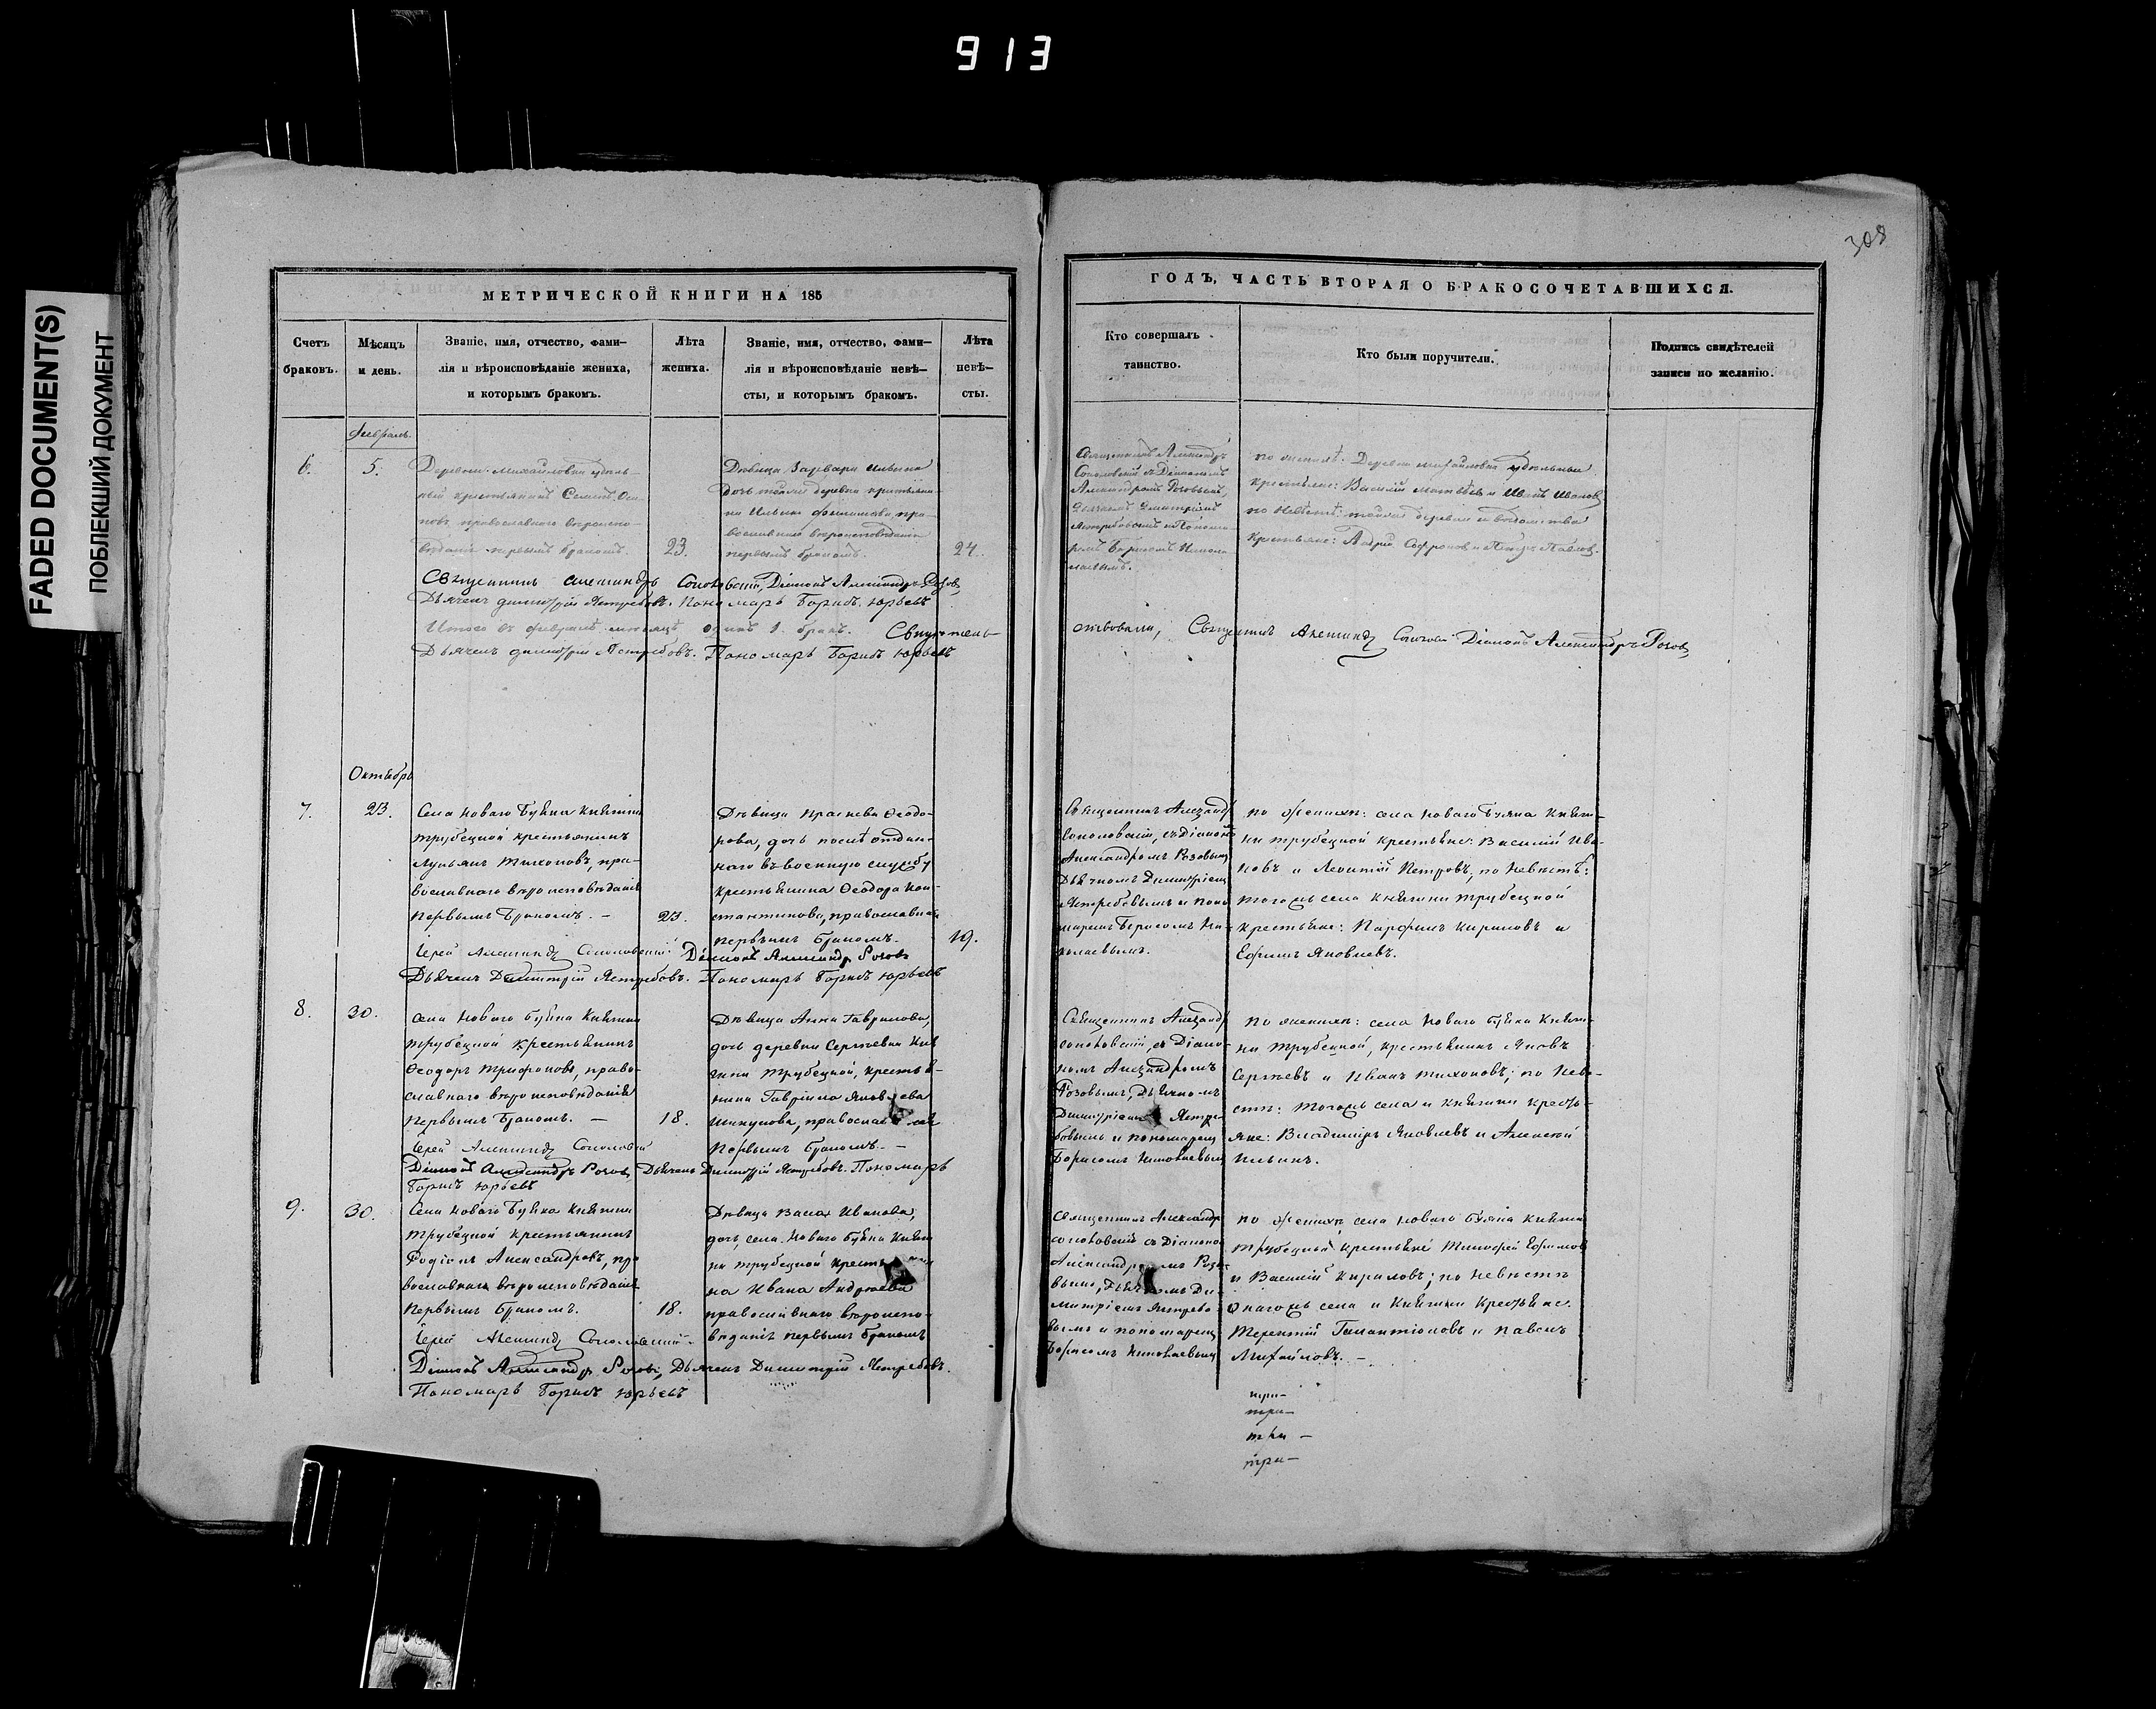 913
FADED DOCUMENT(S)
ПОБЛЕКШИЙ ДОКУМЕНТ
308
МЕТРИЧЕСКОЙ КНИГИ НА 185
Счетъ
браковъ.
Мѣсяцъ
и день.
Званіе, имя, отчество, фами–
лія и вѣроисповѣданіе жениха,
и которымъ бракомъ.
Лѣта
жениха.
Званіе, имя, отчество, фами–
лія и вѣроисповѣданіе невѣ–
сты, и которымъ бракомъ.
Лѣта
невѣ–
сты.
ГОДЪ, ЧАСТЬ ВТОРАЯ О БРАКОСОЧЕТАВШИХСЯ.
Кто совершалъ
таинство.
Кто были поручители.
Подпись свидѣтелей
записи по желанію.
Февраль.
6.
5.
Деревни Михайловки удѣль-
ный крестьянинъ Семенъ
православнаго вѣроиспо-
вѣданія первымъ бракомъ.
23.
Дѣвица Варвара Ильина
дочь тойже деревни крестьяни-
на Ильи пра-
вославнаго вѣроисповѣданія
первымъ бракомъ.
24.
Священникъ Александръ
Соколовскій съ Діакономъ
Александромъ Розовымъ,
Дьячкомъ Димитріемъ
Ястребовымъ и Понома-
ремъ Борисомъ Никола-
евымъ.
по женихѣ: Деревни Михайловки удѣльные
крестьяне: Василій Матвѣевъ и Иванъ Ивановъ
по невѣстѣ: тойже деревни и вѣдомства
крестьяне: Андрей Софроновъ и Петръ Павловъ.
Священникъ Александръ Соколовскій, Діаконъ Александръ Розовъ
Дьячекъ Димитрій Ястребовъ. Пономарь Борисъ Юрьевъ
Итого въ февралѣ мѣсяцѣ одинъ 1. бракъ. Свидѣтель-
ствовали, Священникъ Александръ Соколовскій Діаконъ Александръ Розовъ
Дьячекъ Димитрій Ястребовъ. Пономарь Борисъ Юрьевъ
Октябрь
7.
23.
Села Новаго Буяна Княгини
Трубецкой крестьянинъ
Лукьянъ Тихоновъ, пра-
вославнаго вѣроисповѣданія
первымъ бракомъ. –
23.
Дѣвица Прасковья Ѳеодо-
рова, дочь послѣ отдан-
наго въ военную службу
крестьянина Ѳеодора Кон-
стантинова, православна
первымъ бракомъ.
19.
Священникъ Александръ
Соколовскій, съ Діакономъ
Александромъ Розовымъ
Дьячкомъ Димитріемъ
Ястребовымъ и поно-
маремъ Борисомъ Ни-
колаевымъ.
по женихѣ: села Новаго Буяна Княги-
ни Трубецкой крестьяне: Василій Ива-
новъ и Леонтій Петровъ, по невѣстѣ:
тогожъ села Княгини Трубецкой
крестьяне: Парфенъ Кириловъ и
Ефимъ Яковлевъ.
Іерей Александръ Соколовскій Діаконъ Александръ Розовъ
Дьячекъ Димитрій Ястребовъ. Пономарь Борисъ Юрьевъ
8.
30.
Села Новаго Буяна Княгини
Трубецкой крестьянинъ
Ѳеодоръ Трифоновъ, право-
славнаго вѣроисповѣданія
первымъ бракомъ. –
18.
Дѣвица Анна Гаврилова,
дочь деревни Сергѣевки Кня-
гини Трубецкой, крестья-
нина Гавріила Яковлева
первымъ бракомъ. –
Священникъ Александръ
Соколовскій, съ Діако-
номъ Александромъ
Розовымъ, Дьячкомъ
Димитріемъ Ястре-
бовымъ и пономаремъ
Борисомъ Николаевымъ
по женихѣ: села Новаго Буяна Княги-
ни Трубецкой, крестьянинъ Яковъ
Сергѣевъ и Иванъ Тихоновъ; по невѣ-
стѣ: тогожъ села и Княгини кресть-
яне: Владиміръ Яковлевъ и Алексѣй
Ильинъ.
Іерей Александръ Соколовскій
Діаконъ Александръ Розовъ, Дьячекъ Димитрій Ястребовъ. Пономарь
Борисъ Юрьевъ
9.
30.
Села Новаго Буяна Княгини
Трубецкой крестьянинъ
Родіонъ Александровъ, пра-
вославнаго вѣроисповѣданія
первымъ бракомъ.
18.
Дѣвица Васса Иванова,
дочь, села Новаго Буяна Княги-
ни Трубецкой крестьяни-
на Ивана Андреева
православнаго вѣроиспо-
вѣданія первымъ бракомъ
Священникъ Александръ
Соколовскій съ Діакономъ
Александромъ Розо-
вымъ, Дьячкомъ Ди-
митріемъ Ястребо-
вымъ и пономаремъ
Борисомъ Николаевымъ
по женихѣ села Новаго Буяна Княгини
Трубецкой крестьяне Тимофей Ефимовъ
и Василій Кириловъ; по невѣстѣ
онагожъ села и Княгини крестьяне.
Терентій Галактіоновъ и Павелъ
Михайловъ. –
Іерей Александръ Соколовскій
Діаконъ Александръ Розовъ, Дьячекъ Димитрій Ястребовъ.
Пономарь Борисъ Юрьевъ
три–
три –
три–